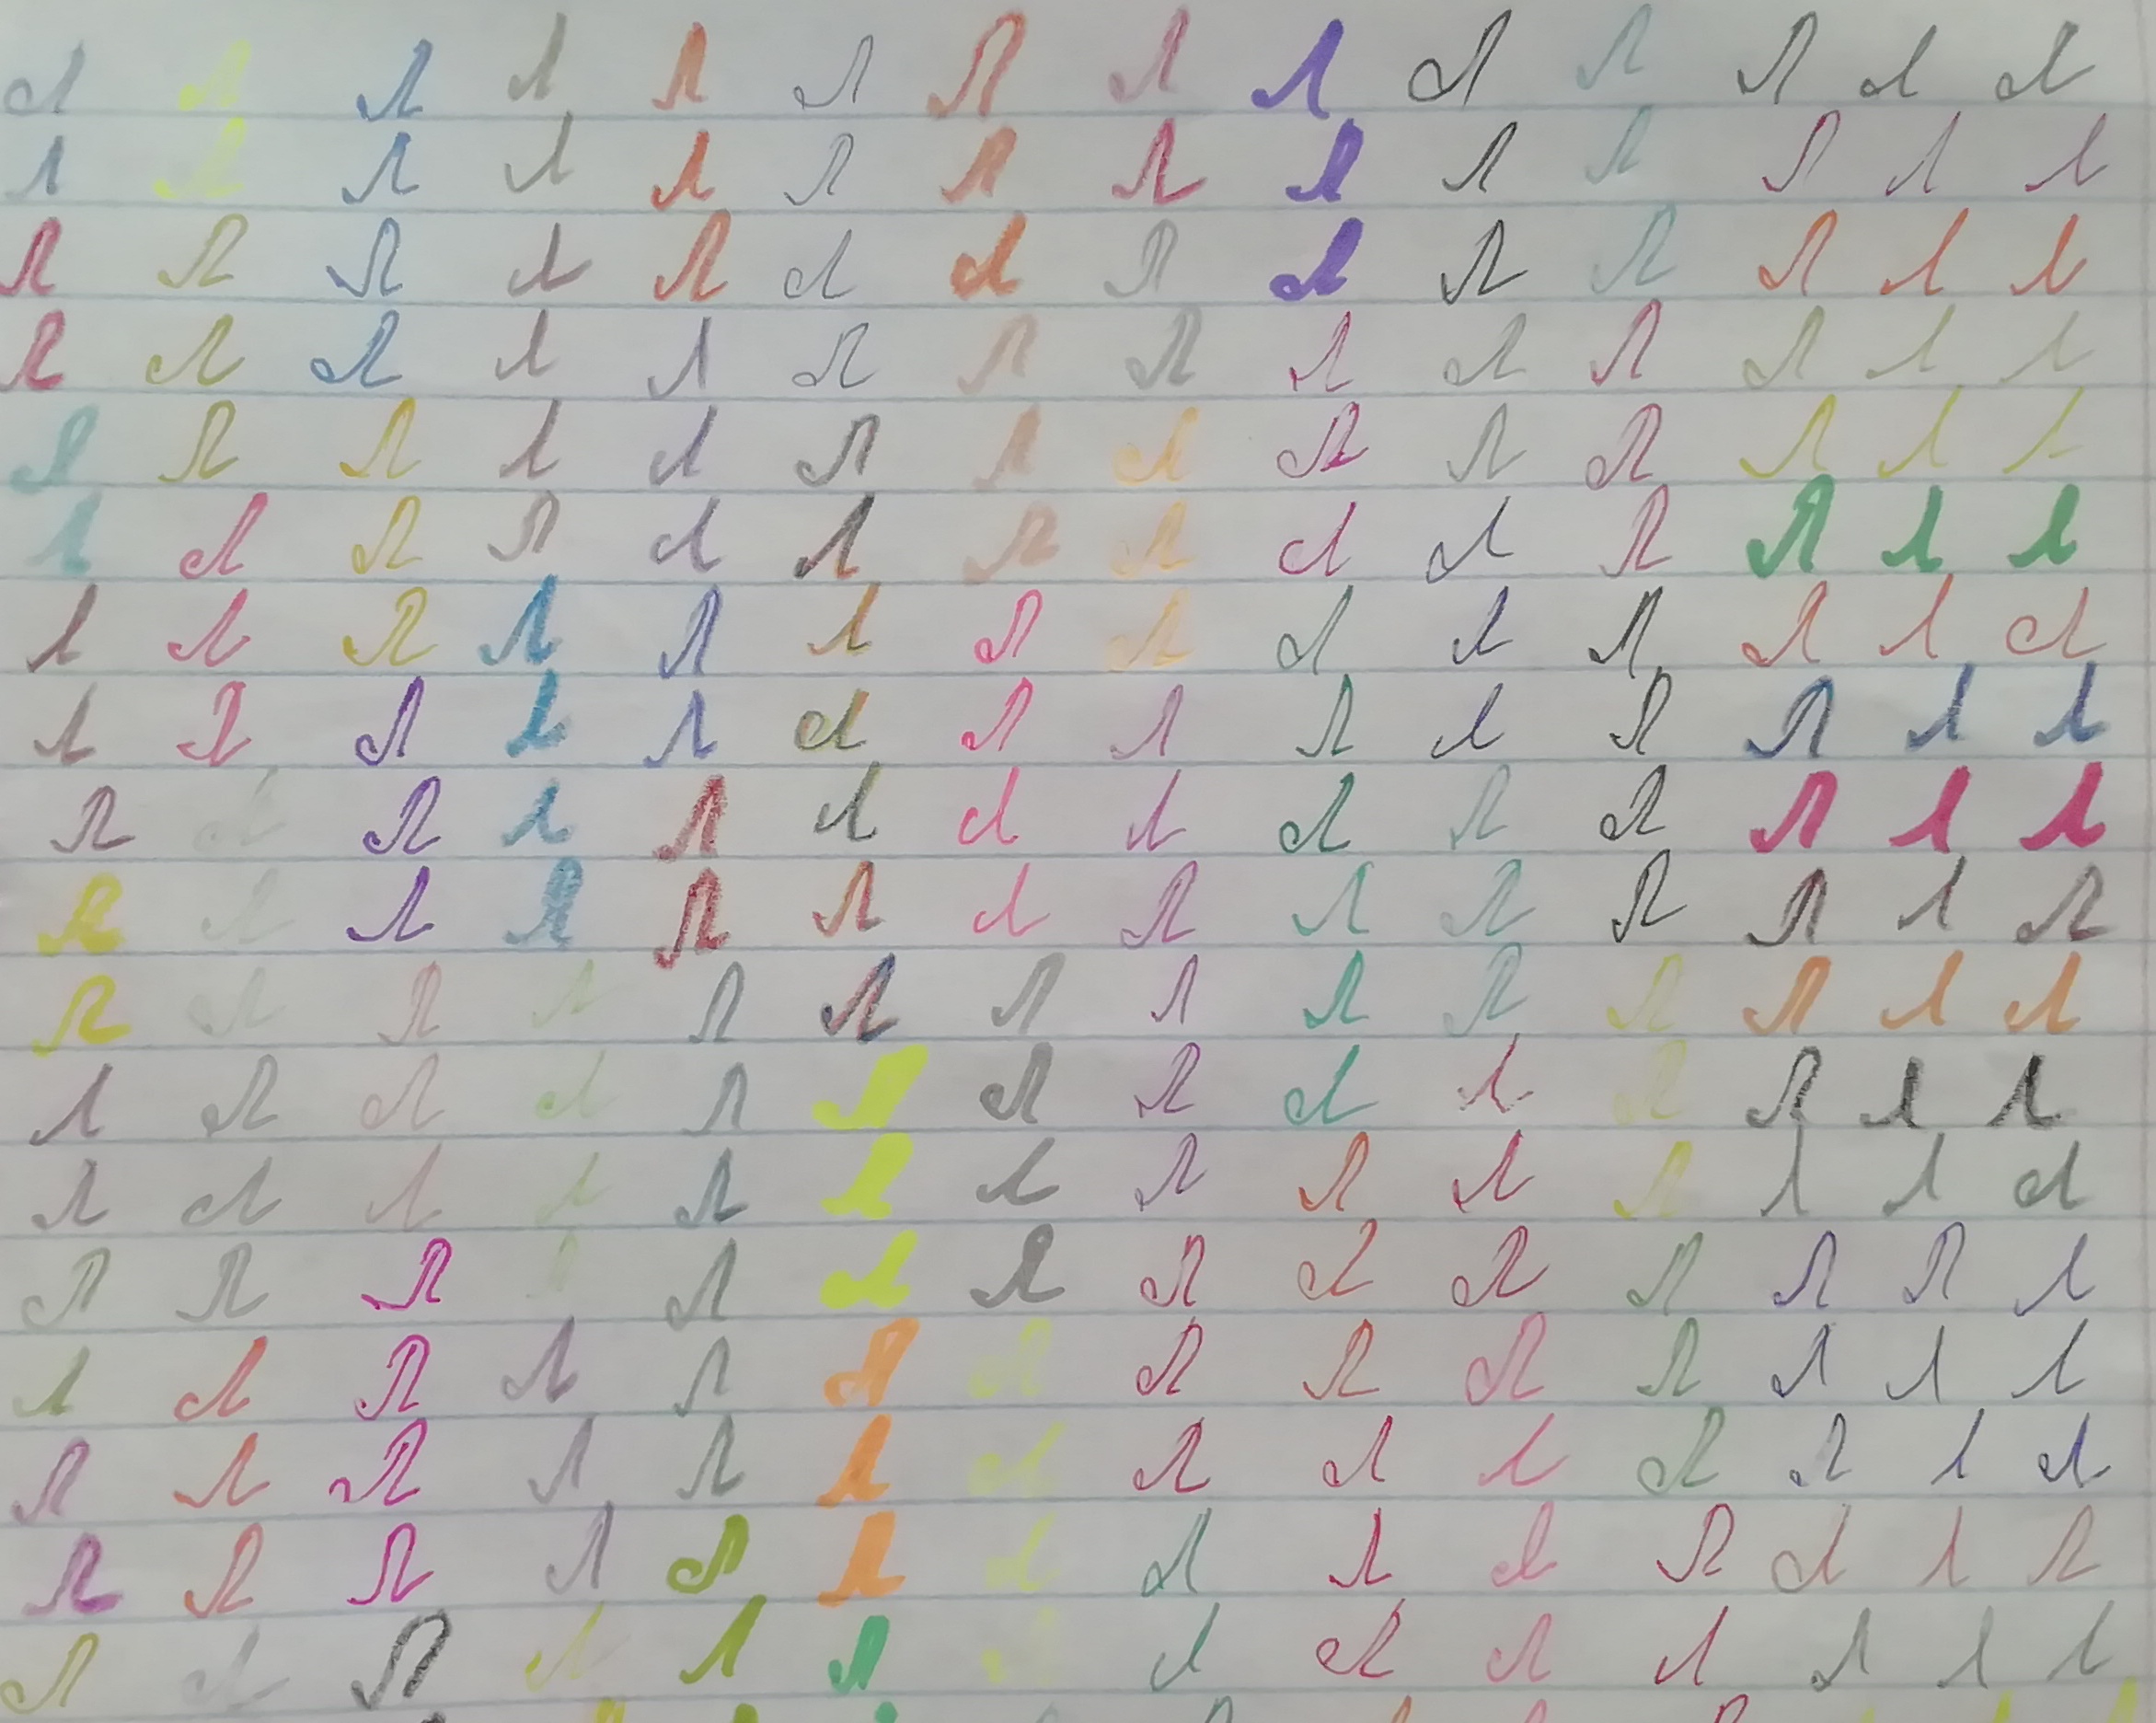 Л Л Л Л Л Л Л Л Л Л Л Л Л Л
Л Л Л Л Л Л Л Л Л Л Л Л Л Л
Л Л Л Л Л Л Л Л Л Л Л Л Л Л
Л Л Л Л Л Л Л Л Л Л Л Л Л Л
Л Л Л Л Л Л Л Л Л Л Л Л Л Л
Л Л Л Л Л Л Л Л Л Л Л Л Л Л
Л Л Л Л Л Л Л Л Л Л Л Л Л Л
Л Л Л Л Л Л Л Л Л Л Л Л Л Л
Л Л Л Л Л Л Л Л Л Л Л Л Л Л
Л Л Л Л Л Л Л Л Л Л Л Л Л Л
Л Л Л Л Л Л Л Л Л Л Л Л Л Л
Л Л Л Л Л Л Л Л Л Л Л Л Л Л
Л Л Л Л Л Л Л Л Л Л Л Л Л Л
Л Л Л Л Л Л Л Л Л Л Л Л Л Л
Л Л Л Л Л Л Л Л Л Л Л Л Л Л
Л Л Л Л Л Л Л Л Л Л Л Л Л Л
Л Л Л Л Л Л Л Л Л Л Л Л Л Л
Л Л Л Л Л Л Л Л Л Л Л Л Л Л